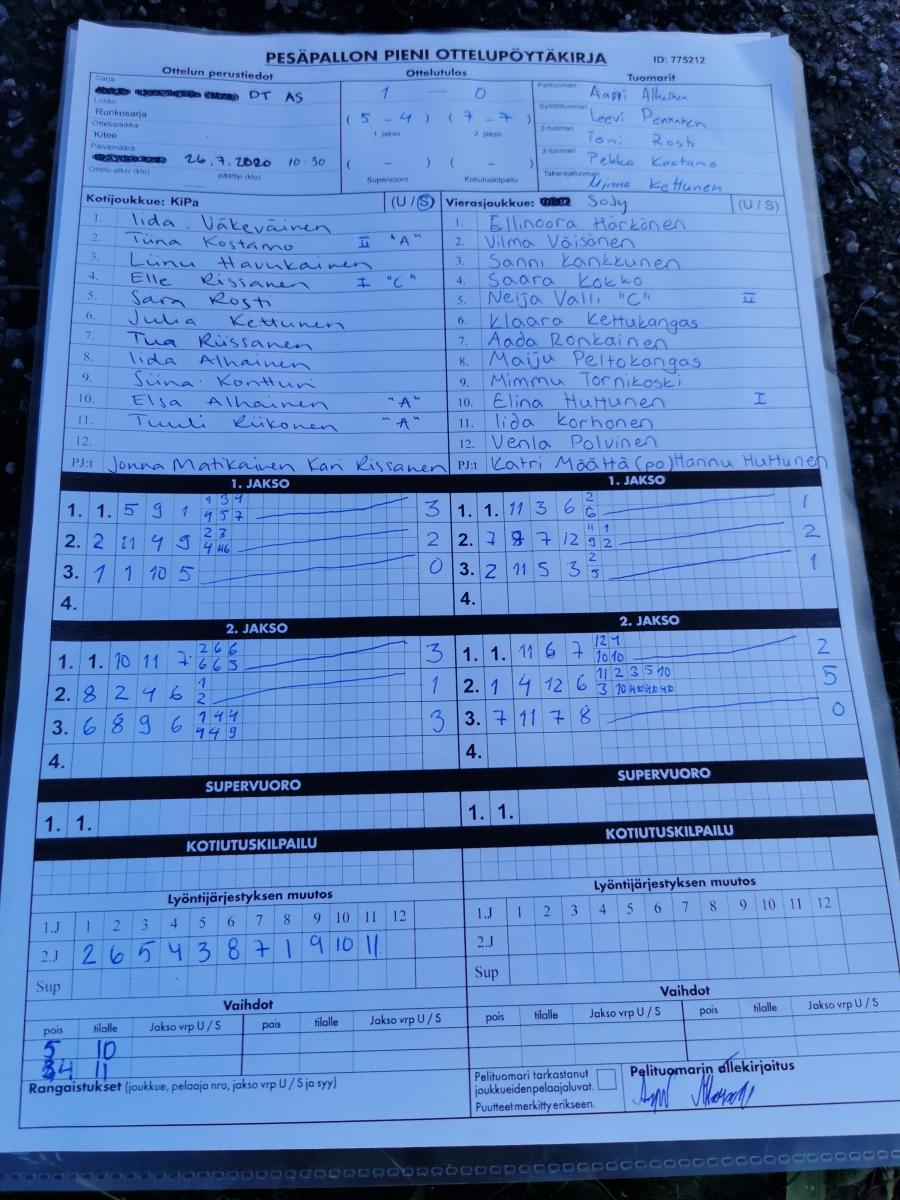 PESÄPALLON PIENI OTTELUPÖYTÄKIRJA ID: 775212
Ottelun perustiedot Ottelutulos Tuomarit
Sarja DT AS 1 – 0 Pelituomari Aappi Alhainen
Lohko
Runkosarja ( 5 – 4 ) ( 7 – 7 ) Syöttötuomari Leevi Pennanen
1. jakso 2. jakso
Ottelupaikka 2-tuomari Toni Rosti
Kitee
Päivämäärä 26.7.2020 10:30 ( – ) ( – ) 3-tuomari Pekka Kostamo
Ottelu alkoi (klo) päättyi (klo) Supervuoro Kotiutuskilpailu Takarajatuomari Minna Kettunen
Kotijoukkue: KiPa (U / S) Vierasjoukkue: SoJy (U / S)
1. Iida Väkeväinen 1. Ellinoora Härkönen
2. Tiina Kostamo II "A" 2. Vilma Väisänen
3. Liinu Havukainen 3. Sanni Kankkunen
4. Elle Rissanen I "C" 4. Saara Kokko
5. Sara Rosti 5. Neija Valli "C" II
6. Julia Kettunen 6. Klaara Kettukangas
7. Tua Riissanen 7. Aada Ronkainen
8. Iida Alhainen 8. Maiju Peltokangas
9. Siina Kontturi 9. Mimmu Tornikoski
10. Elsa Alhainen "A" 10. Elina Huttunen I
11. Tuuli Riikonen "A" 11. Iida Korhonen
12. 12. Venla Polvinen
PJ:t Jonna Matikainen Kari Rissanen PJ:t Katri Määttä (po) Hannu Huttunen
1. JAKSO 1. JAKSO
1. 1. 5 9 1 3 1. 1. 11 3 6 2 1
4 5 7 6
2. 2 11 4 9 2 3 2 2. 7 8 7 12 11 1 2
9 2
3. 1 1 10 5 0 3. 2 11 5 3 2 1
5
4. 4.
2. JAKSO 2. JAKSO
1. 1. 10 11 7 2 6 6 3 1. 1. 11 6 7 12 1 2
6 6 5 10 10
2. 8 2 4 6 1 1 2. 1 4 12 6 11 2 3 5 10 5
2 3 10
3. 6 8 9 6 1 4 4 3 3. 7 11 7 8 0
4 4 9
4. 4.
SUPERVUORO SUPERVUORO
1. 1. 1. 1.
KOTIUTUSKILPAILU KOTIUTUSKILPAILU
Lyöntijärjestyksen muutos Lyöntijärjestyksen muutos
1.J 1 2 3 4 5 6 7 8 9 10 11 12 1.J 1 2 3 4 5 6 7 8 9 10 11 12
2.J 2 6 5 4 3 8 7 1 9 10 11 2.J
Sup Sup
Vaihdot Vaihdot
pois tilalle Jakso vrp U / S pois tilalle Jakso vrp U / S pois tilalle Jakso vrp U / S pois tilalle Jakso vrp U / S
5 10
4 11
Rangaistukset (joukkue, pelaaja nro, jakso vrp U / S ja syy) Pelituomari tarkastanut Pelituomarin allekirjoitus
joukkueiden pelaajaluvat.
Puutteet merkitty erikseen.